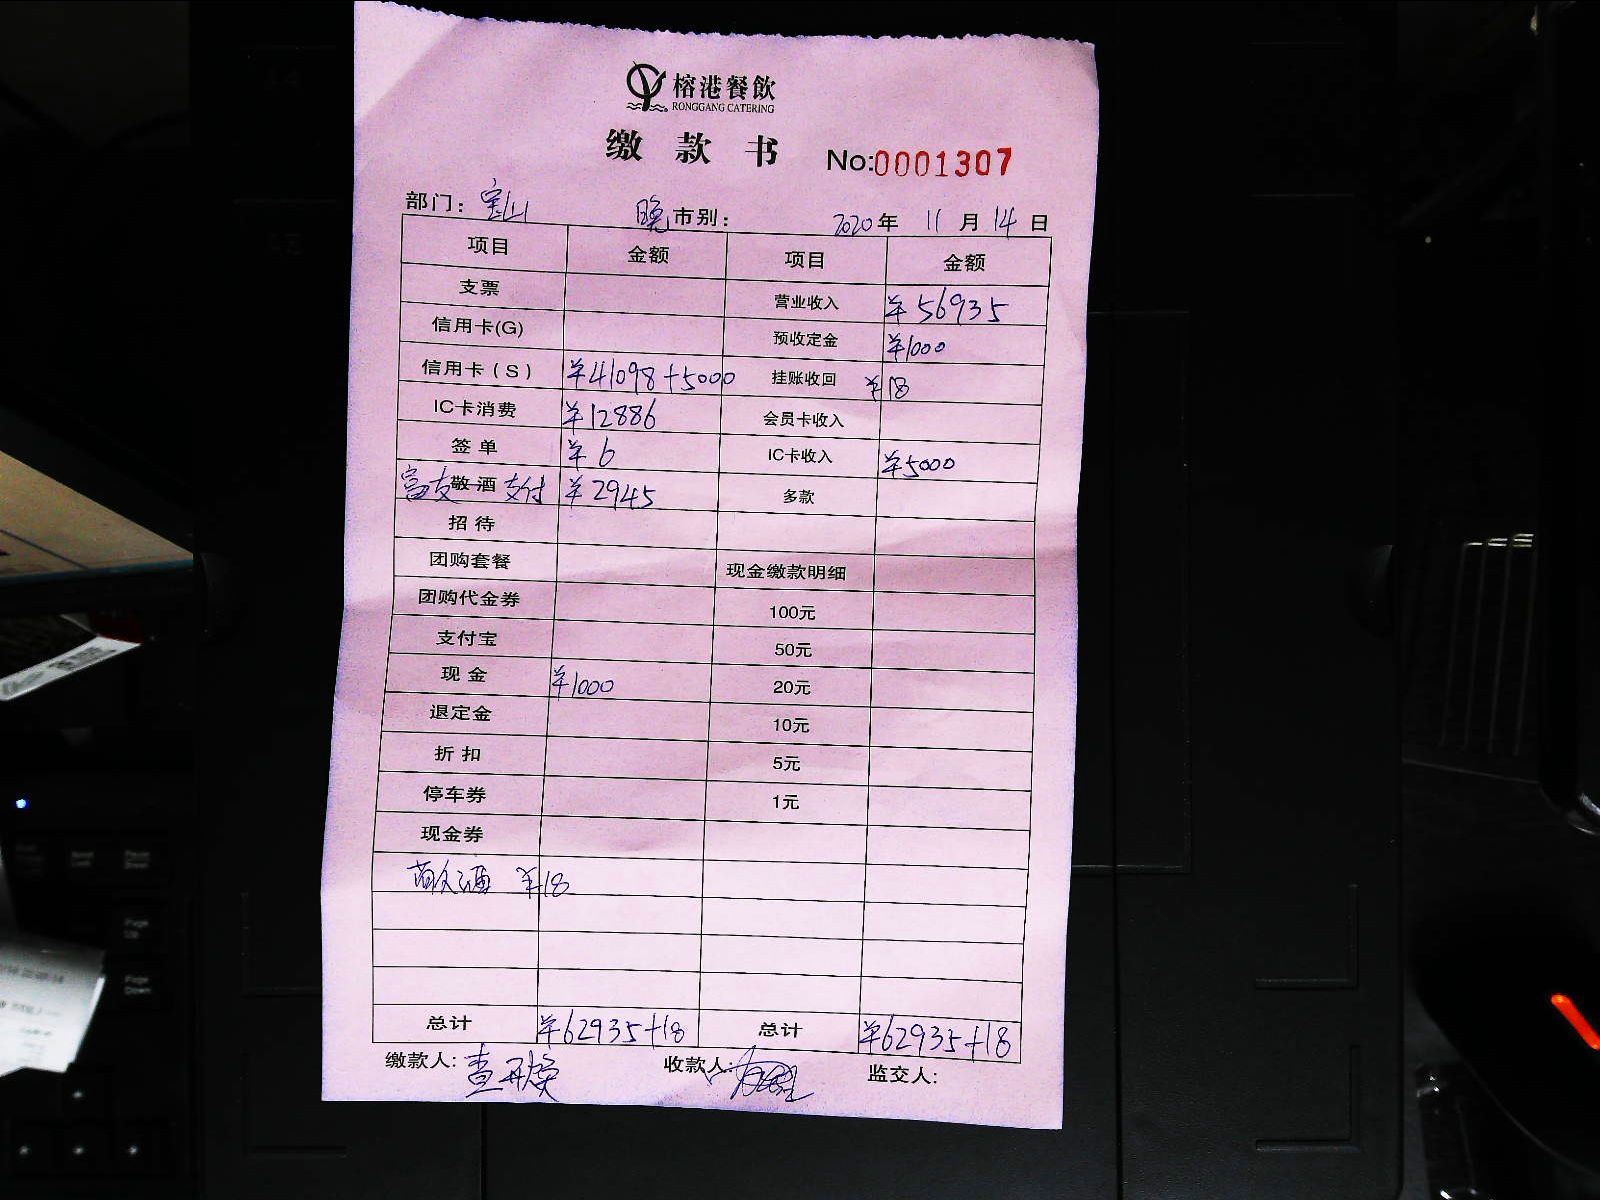 榕港餐飲
RONGGANG CATERING
缴款书 No:0001307
部门：宝山 晚市别： 2020年 11月14日
项目 金额 项目 金额
支票 营业收入 ¥56935
信用卡(G) 预收定金 ¥1000
信用卡（S） ¥41098+5000 挂账收回 ¥18
IC卡消费 ¥12886 会员卡收入
签单 ¥6 IC卡收入 ¥5000
富友敬酒支付 ¥2945 多款
招待
团购套餐 现金缴款明细
团购代金券 100元
支付宝 50元
现金 ¥1000 20元
退定金 10元
折扣 5元
停车券 1元
现金券
酒 ¥18
总计 ¥62935+18 总计 ¥62935+18
缴款人: 查 收款人: 监交人: